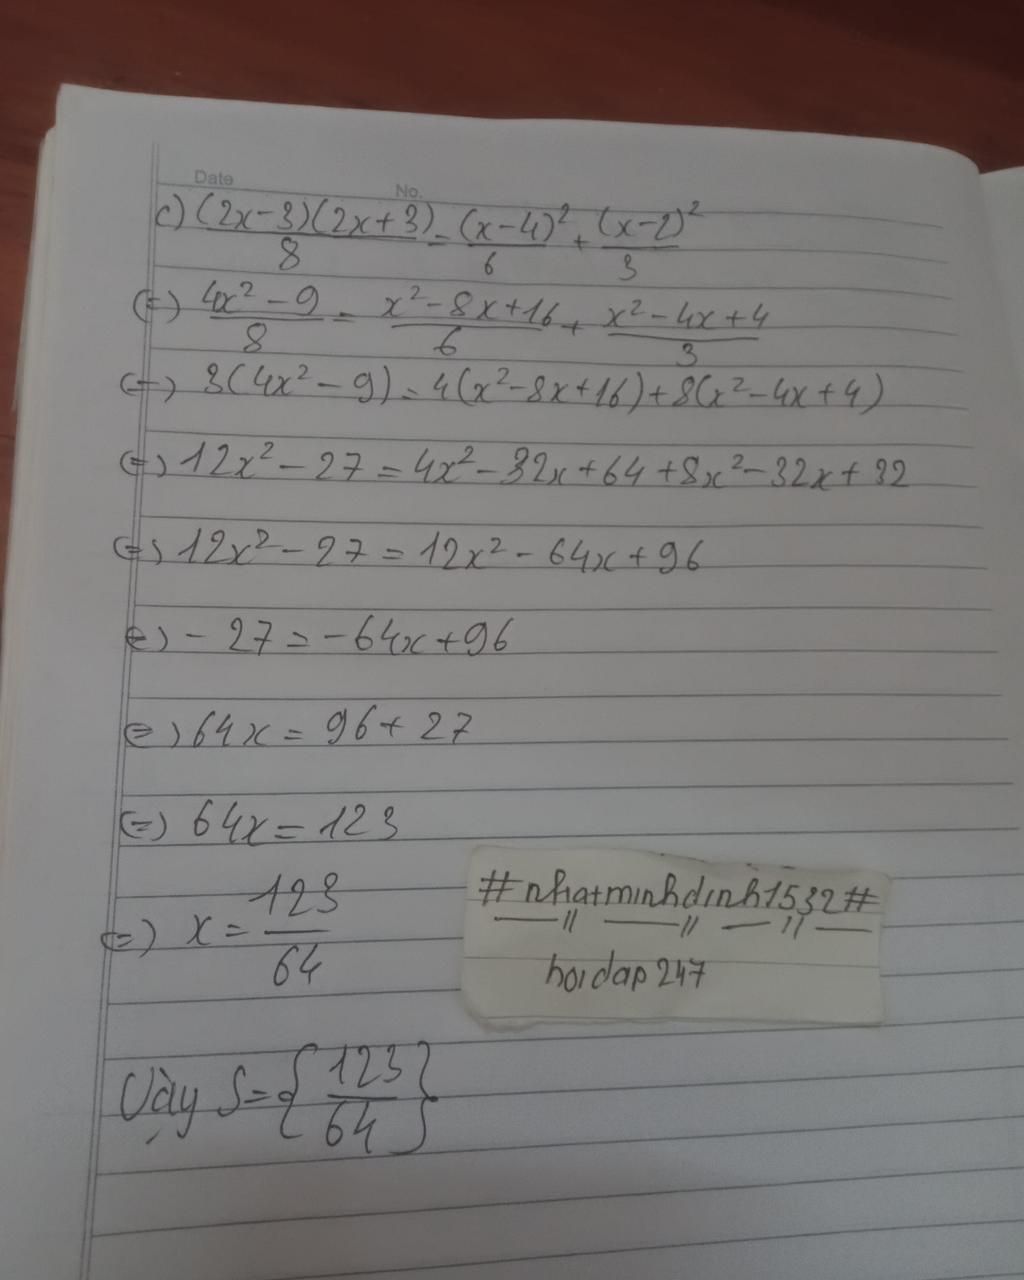 Date No.
c) (2x-3)(2x+3)/8 = (x-4)²/6 + (x-2)²/3
(=) 4x²-9/8 = x²-8x+16/6 + x²-4x+4/3
(=) 3(4x²-9) = 4(x²-8x+16)+8(x²-4x+4)
(=) 12x²-27 = 4x²-32x+64+8x²-32x+32
(=) 12x²-27 = 12x²-64x+96
(=) -27 = -64x+96
(=) 64x = 96+27
(=) 64x = 123
(=) x = 123/64
#nhatminhdinh1532#
hoidap247
Vậy S = {123/64}